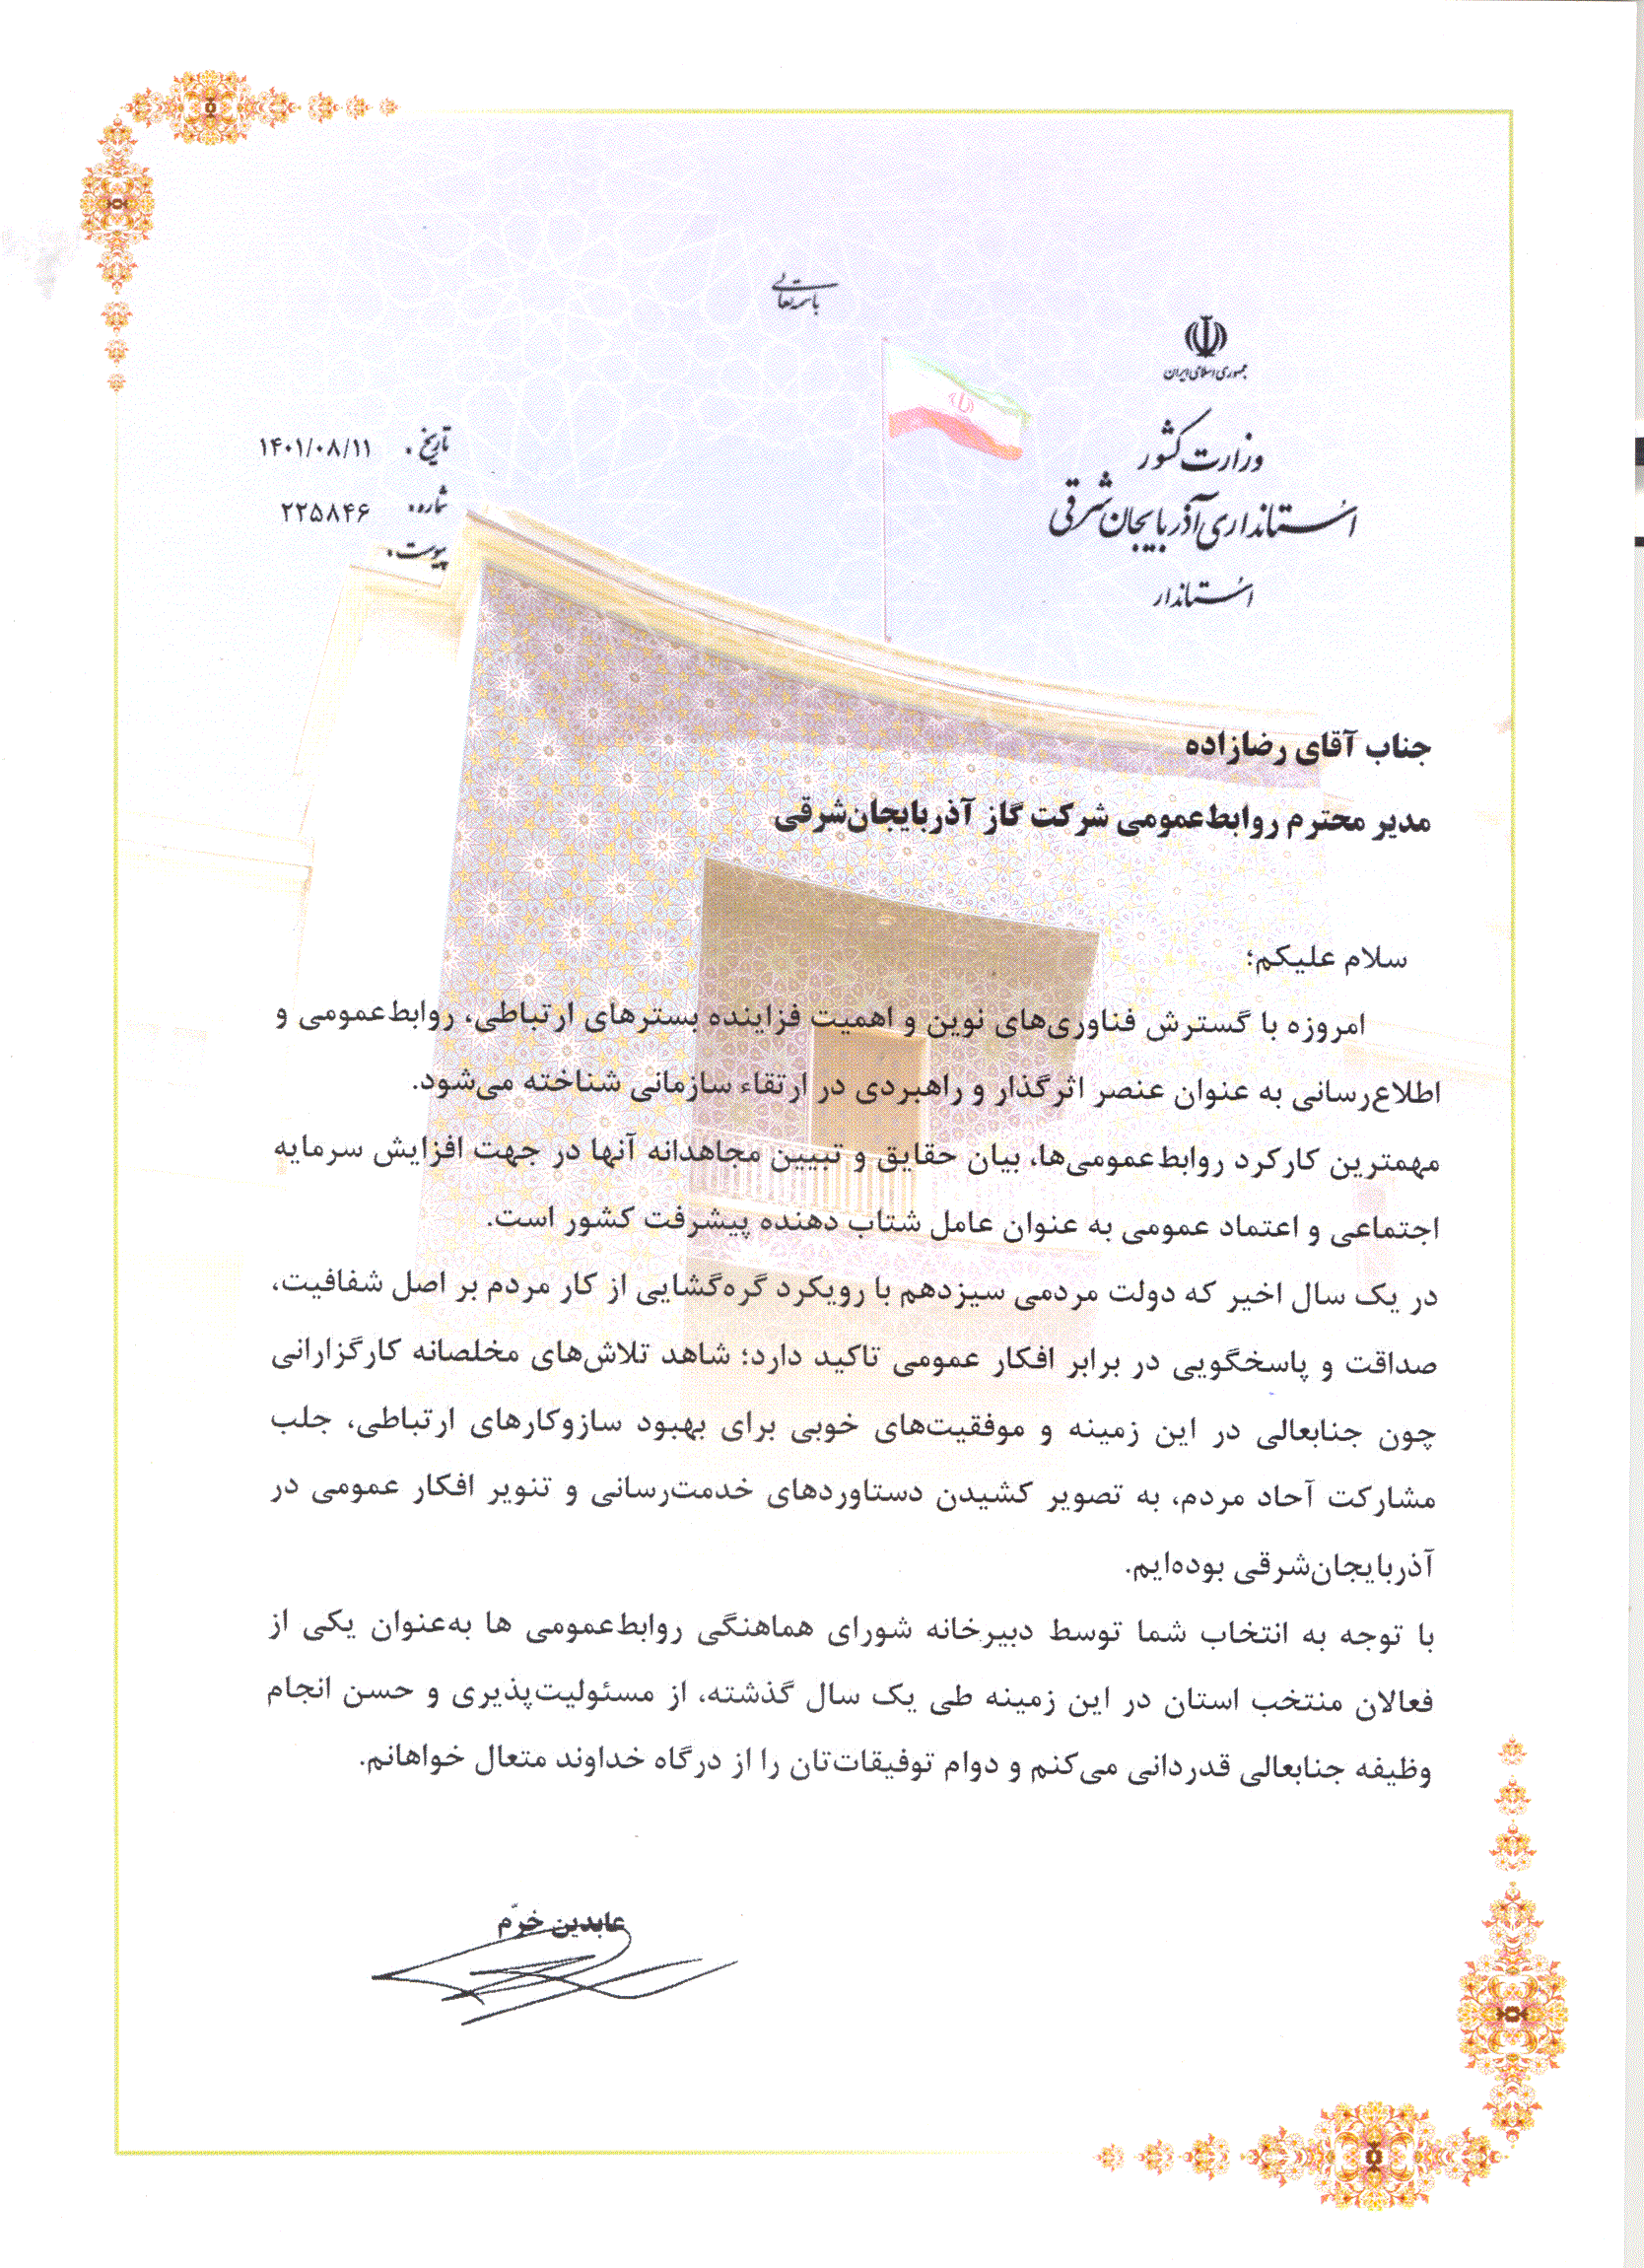 باسمه تعالی
جمهوری اسلامی ایران
وزارت کشور
استانداری آذربایجان شرقی
استاندار
تاریخ : ۱۴۰۱/۰۸/۱۱
شماره: ۲۲۵۸۴۶
پیوست:
جناب آقای رضازاده
مدیر محترم روابط‌عمومی شرکت گاز آذربایجان‌شرقی
سلام علیکم؛
امروزه با گسترش فناوری‌های نوین و اهمیت فزاینده بسترهای ارتباطی، روابط‌عمومی و
اطلاع‌رسانی به عنوان عنصر اثرگذار و راهبردی در ارتقاء سازمانی شناخته می‌شود.
مهمترین کارکرد روابط‌عمومی‌ها، بیان حقایق و تبیین مجاهدانه آنها در جهت افزایش سرمایه
اجتماعی و اعتماد عمومی به عنوان عامل شتاب دهنده پیشرفت کشور است.
در یک سال اخیر که دولت مردمی سیزدهم با رویکرد گره‌گشایی از کار مردم بر اصل شفافیت،
صداقت و پاسخگویی در برابر افکار عمومی تاکید دارد؛ شاهد تلاش‌های مخلصانه کارگزارانی
چون جنابعالی در این زمینه و موفقیت‌های خوبی برای بهبود سازوکارهای ارتباطی، جلب
مشارکت آحاد مردم، به تصویر کشیدن دستاوردهای خدمت‌رسانی و تنویر افکار عمومی در
آذربایجان‌شرقی بوده‌ایم.
با توجه به انتخاب شما توسط دبیرخانه شورای هماهنگی روابط‌عمومی ها به‌عنوان یکی از
فعالان منتخب استان در این زمینه طی یک سال گذشته، از مسئولیت‌پذیری و حسن انجام
وظیفه جنابعالی قدردانی می‌کنم و دوام توفیقات‌تان را از درگاه خداوند متعال خواهانم.
عابدین خرّم